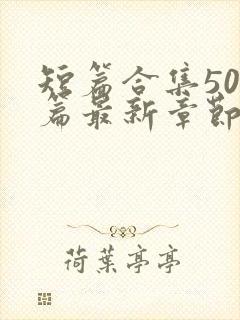 短篇合集50
篇最新章節
荷葉亭亭